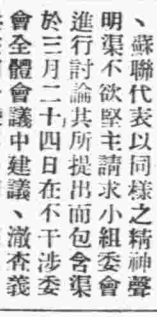 、蘇聯代表以同樣之精神聲
明渠不欲堅主請求小組委會
進行討論其所提出而包含渠
於三月二十四日在不干涉委
會全體會議中建議、澈査義